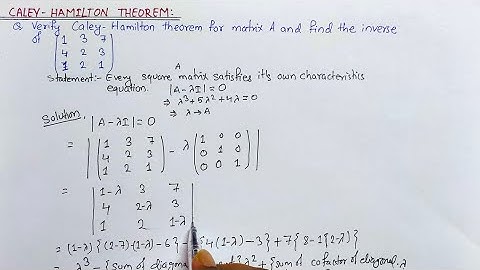 CALEY-HAMILTON THEOREM:
Q Verify Caley-Hamilton theorem for matrix A and find the inverse
of (1 3 7
4 2 3
1 2 1)
Statement:- Every square matrix satisfies it's own characteristis
A
equation. |A-λI|=0
⇒ λ³+5λ²+4λ=0
⇒ λ→A
Solution. |A-λI|=0
= |(1 3 7
4 2 3
1 2 1) - λ (1 0 0
0 1 0
0 0 1)|
= |1-λ 3 7
4 2-λ 3
1 2 1-λ|
= (1-λ){(2-λ)(1-λ)-6}- {4(1-λ)-3}+7{8-1(2-λ)}
= λ³-{sum of diagonal }λ²+{sum of cofactor of diagonal λ